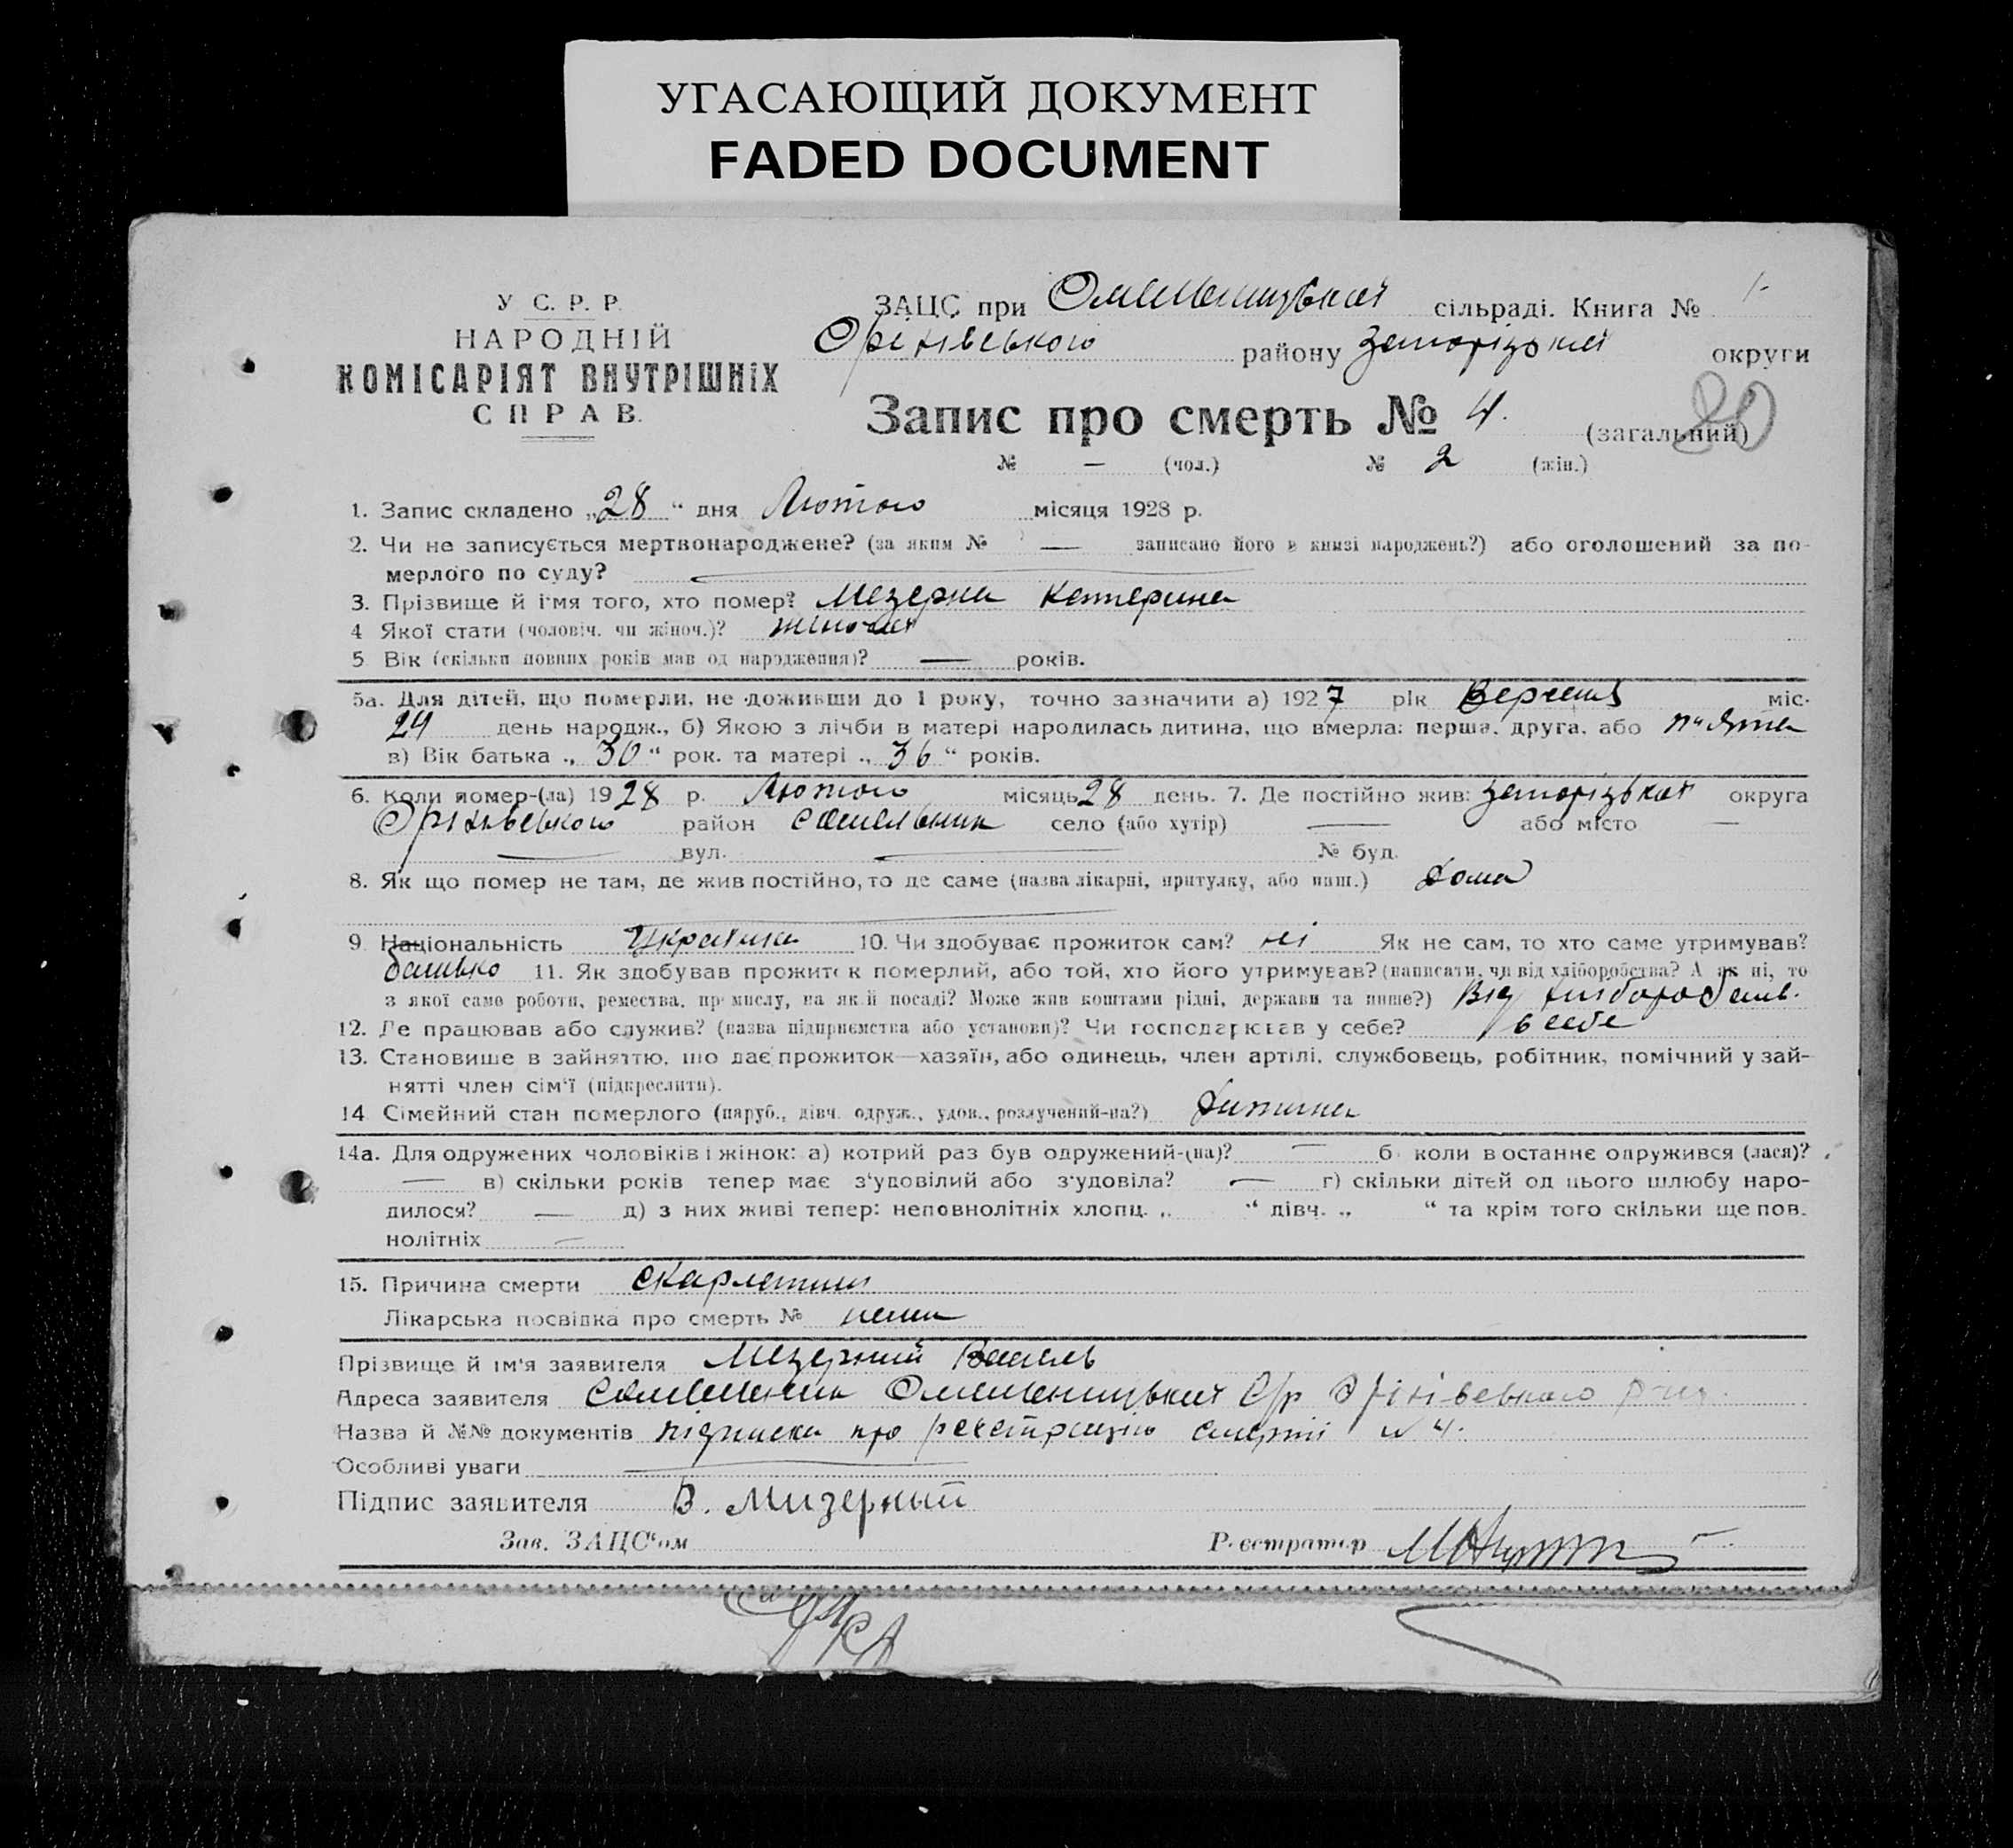 УГАСАЮЩИЙ ДОКУМЕНТ
FADED DOCUMENT
У С. Р. Р.
НАРОДНІЙ
КОМІСАРІЯТ ВНУТРІШНІХ
СПРАВ.
ЗАЦС при сільраді. Книга № 1
Оріхівського району Запорізької округи
Запис про смерть № 4. (загальний)
20
№ — (чол.) № 2 (жін.)
1. Запис складено „28“ дня Лютого місяця 1928 р.
2. Чи не записується мертвонароджене? (за яким № — записано його в книзі народжень?) або оголошений за по-
мерлого по суду?
3. Прізвище й імя того, хто помер? Мезерна Катерина
4 Якої стати (чоловіч. чи жіноч.)? жіночої
5 Вік (скільки повних років мав од народження)? — років.
5а. Для дітей, що померли, не доживши до 1 року, точно зазначити а) 1927 рік Вересня міс.
24 день народж., б) Якою з лічби в матері народилась дитина, що вмерла: перша, друга, або п'ята
в) Вік батька „30“ рок. та матері „36“ років.
6. Коли помер-(ла) 1928 р. Лютого місяць 28 день. 7. Де постійно жив: Запорізької округа
Оріхівського район село (або хутір) — або місто —
— вул. — № буд.
8. Як що помер не там, де жив постійно, то де саме (назва лікарні, притулку, або инш.) Дома
9. Національність Українка 10. Чи здобуває прожиток сам? ні Як не сам, то хто саме утримував?
батько 11. Як здобував прожиток померлий, або той, хто його утримував? (написати, чи від хліборобства? А як ні, то
з якої саме роботи, ремества, промислу, на якій посаді? Може жив коштами рідні, держави та инше?) Від хліборобств.
12. Де працював або служив? (назва підприємства або установи)? Чи господарював у себе? в себе
13. Становище в зайняттю, що дає прожиток—хазяїн, або одинець, член артілі, службовець, робітник, помічний у зай-
нятті член сім'ї (підкреслити).
14 Сімейний стан померлого (паруб., дівч. одруж., удов., розлучений-на?) Дитина
14а. Для одружених чоловіків і жінок: а) котрий раз був одружений-(на)? — б коли востаннє одружився (лася)?
— в) скільки років тепер має з'удовілий або з'удовіла? — г) скільки дітей од цього шлюбу наро-
дилося? — д) з них живі тепер: неповнолітніх хлопц. „ “ дівч. „ “ та крім того скільки ще пов.
нолітніх —
15. Причина смерти скарлатина
Лікарська посвідка про смерть № нема
Прізвище й ім'я заявителя Мезерний Василь
Адреса заявителя С/р Оріхівського р-ну.
Назва й №№ документів підписка про реєстрацію смерті № 4.
Особливі уваги
Підпис заявителя В. Мизерный
Зав. ЗАЦС'ом Реєстратор